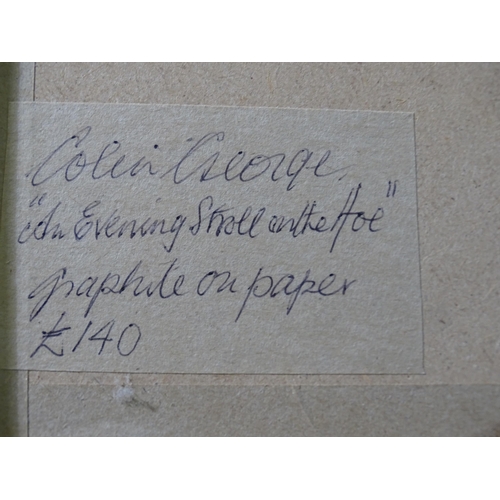 Colin George,
"An Evening Stroll on the Hoe"
graphite on paper
£140